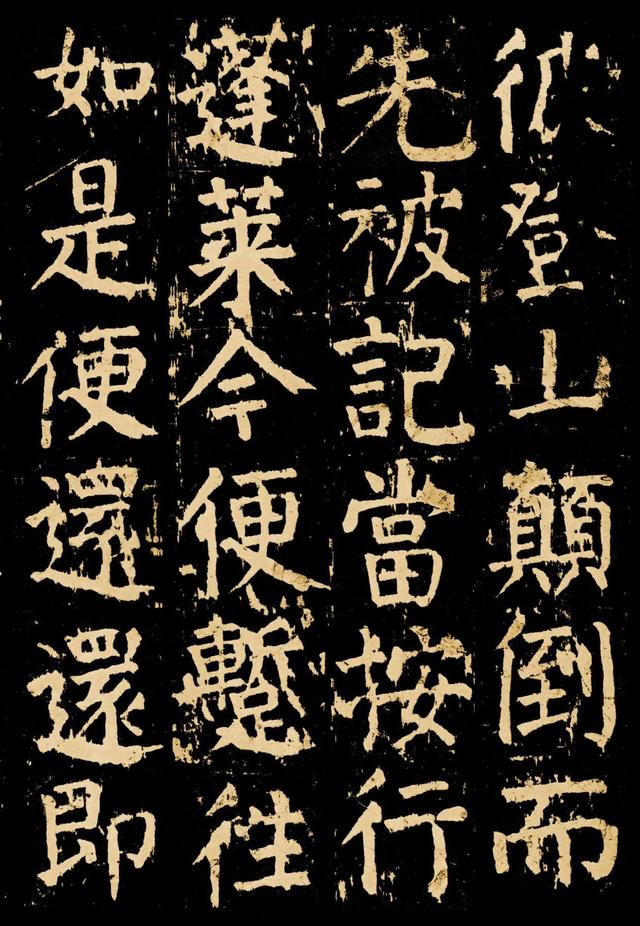 彼登山顛倒而
先被記當按行
蓬萊今便蹔徃
如是便還還即